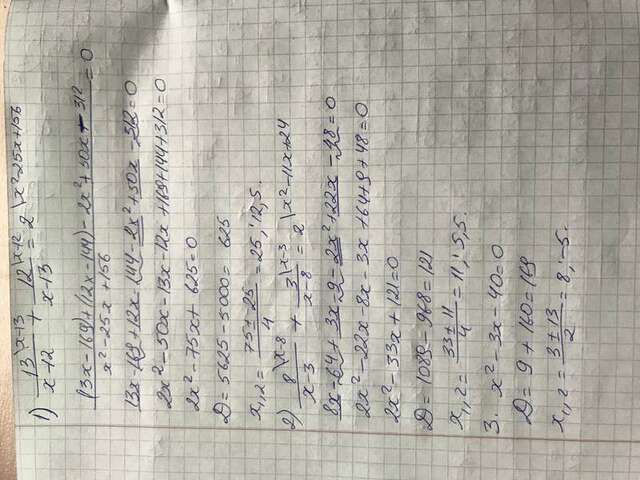 1) 13\x-13/x-12 + 12\x-12/x-13 = 2\x²-25x+156
(13x-169)+(12x-144)-2x²+50x-312/x²-25x+156 = 0
13x-169+12x-144-2x²+50x-312=0
2x²-50x-13x-12x+169+144+312=0
2x²-75x+625=0
D=5625-5000=625
x₁,₂=75±25/4=25; 12,5.
2) 8\x-8/x-3 + 3\x-3/x-8 = 2\x²-11x+24
8x-64+3x-9-2x²+22x-48=0
2x²-22x-8x-3x+64+9+48=0
2x²-33x+121=0
D=1089-968=121
x₁,₂=33±11/4=11; 5,5.
3. x²-3x-40=0
D=9+160=169
x₁,₂=3±13/2=8; -5.